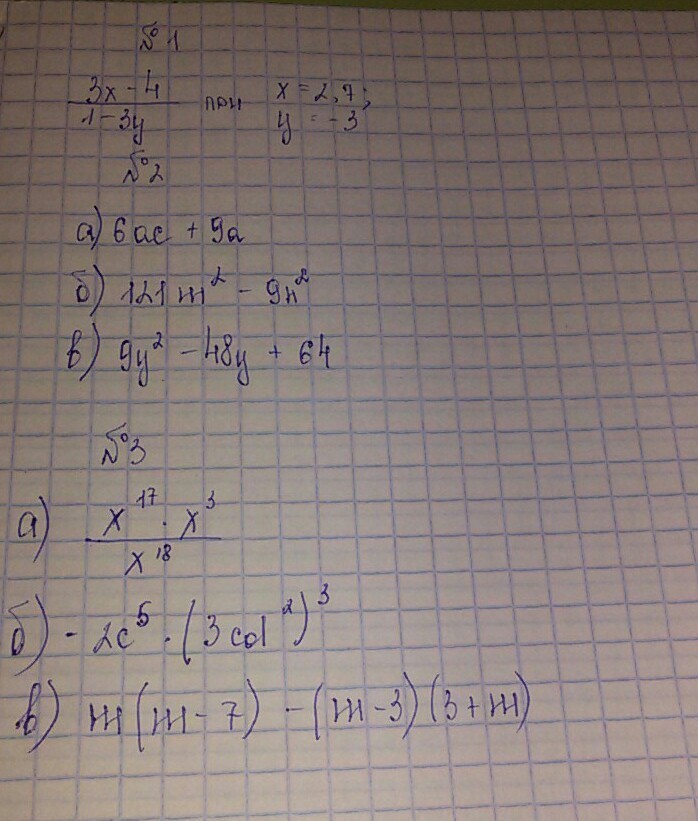 №1
3x - 4 / 1 - 3y при x = 2,7; y = -3
№2
а) 6ac + 9a
б) 121m² - 9n²
в) 9y² - 48y + 64
№3
а) x¹⁷ · x³ / x¹⁸
б) - 2c⁵ · (3cd²)³
в) m(m - 7) - (m - 3)(3 + m)